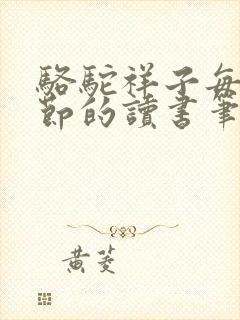 駱駝祥子每
節的讀書筆
黃菱